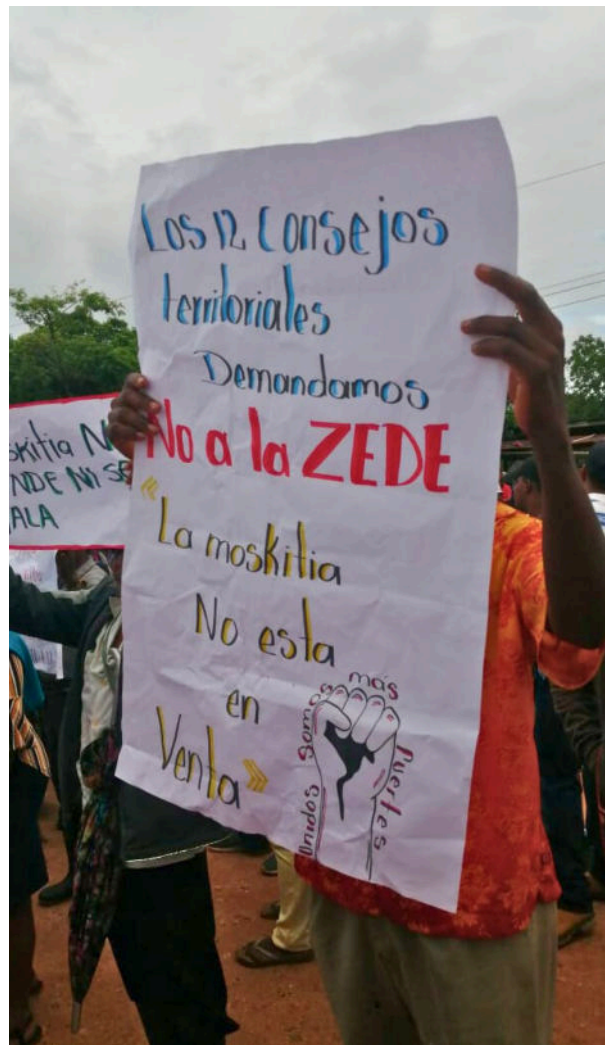 Los 12 Consejos
territoriales
Demandamos
No a la ZEDE
«La moskitia
No esta
en
Venta»
Unidos somos más Fuertes
skitia N
NDE NI SE
ALA